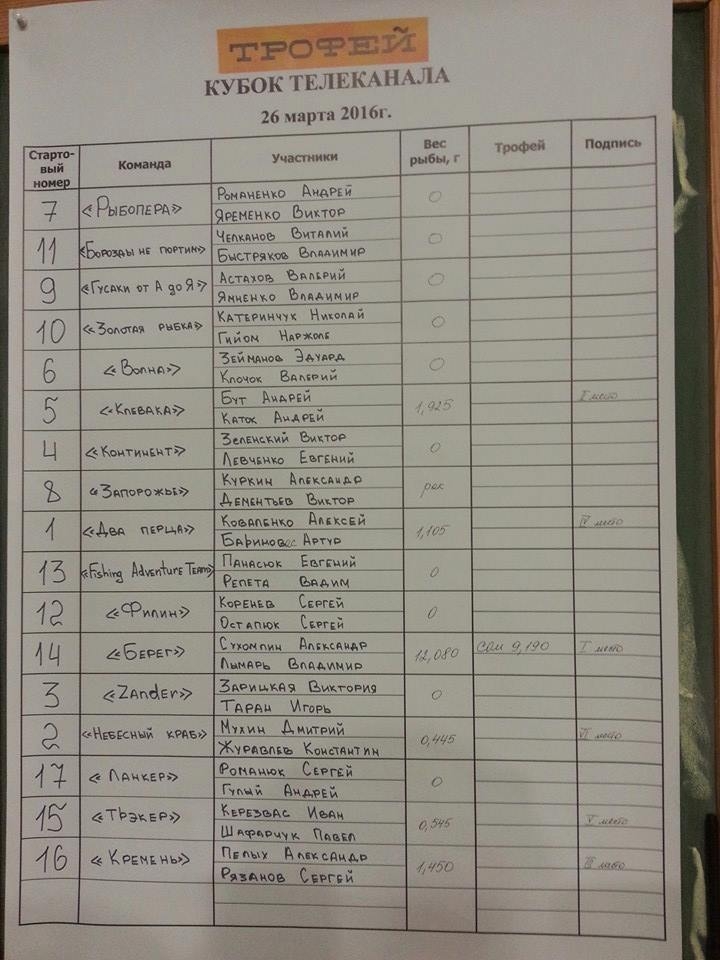 ТРОФЕЙ
КУБОК ТЕЛЕКАНАЛА
26 марта 2016г.
Старто-вый номер Команда Участники Вес рыбы, г Трофей Подпись
7 «Рыбопера» Романенко Андрей 0
Яременко Виктор
11 «Борозды не портим» Челканов Виталий 0
Быстряков Владимир
9 «Гусаки от А до Я» Астахов Валерий 0
Яименко Владимир
10 «Золотая рыбка» Катеринчук Николай 0
Гийом Наржоле
6 «Волна» Зейманов Эдуард 0
Клочок Валерий
5 «Клевака» Бут Андрей 1,925 II место
Каток Андрей
4 «Континент» Зеленский Виктор 0
Левченко Евгений
8 «Запорожье» Куркин Александр рак
Дементьев Виктор
1 «Два перца» Коваленко Алексей 1,105 IV место
Артур
13 «Fishing Adventure Team» Панасюк Евгений 0
Репета Вадим
12 «Филин» Коренев Сергей 0
Остапюк Сергей
14 «Берег» Сухомлин Александр 12,080 сом 9,190 I место
Лымарь Владимир
3 «Zander» Зарицкая Виктория 0
Таран Игорь
2 «Небесный краб» Мухин Дмитрий 0,445 VI место
Журавлев Константин
17 «Ланкер» Романюк Сергей 0
Гулый Андрей
15 «Трэкер» Керезвас Иван 0,545 V место
Шафарчук Павел
16 «Кремень» Пелых Александр 1,450 III место
Рязанов Сергей